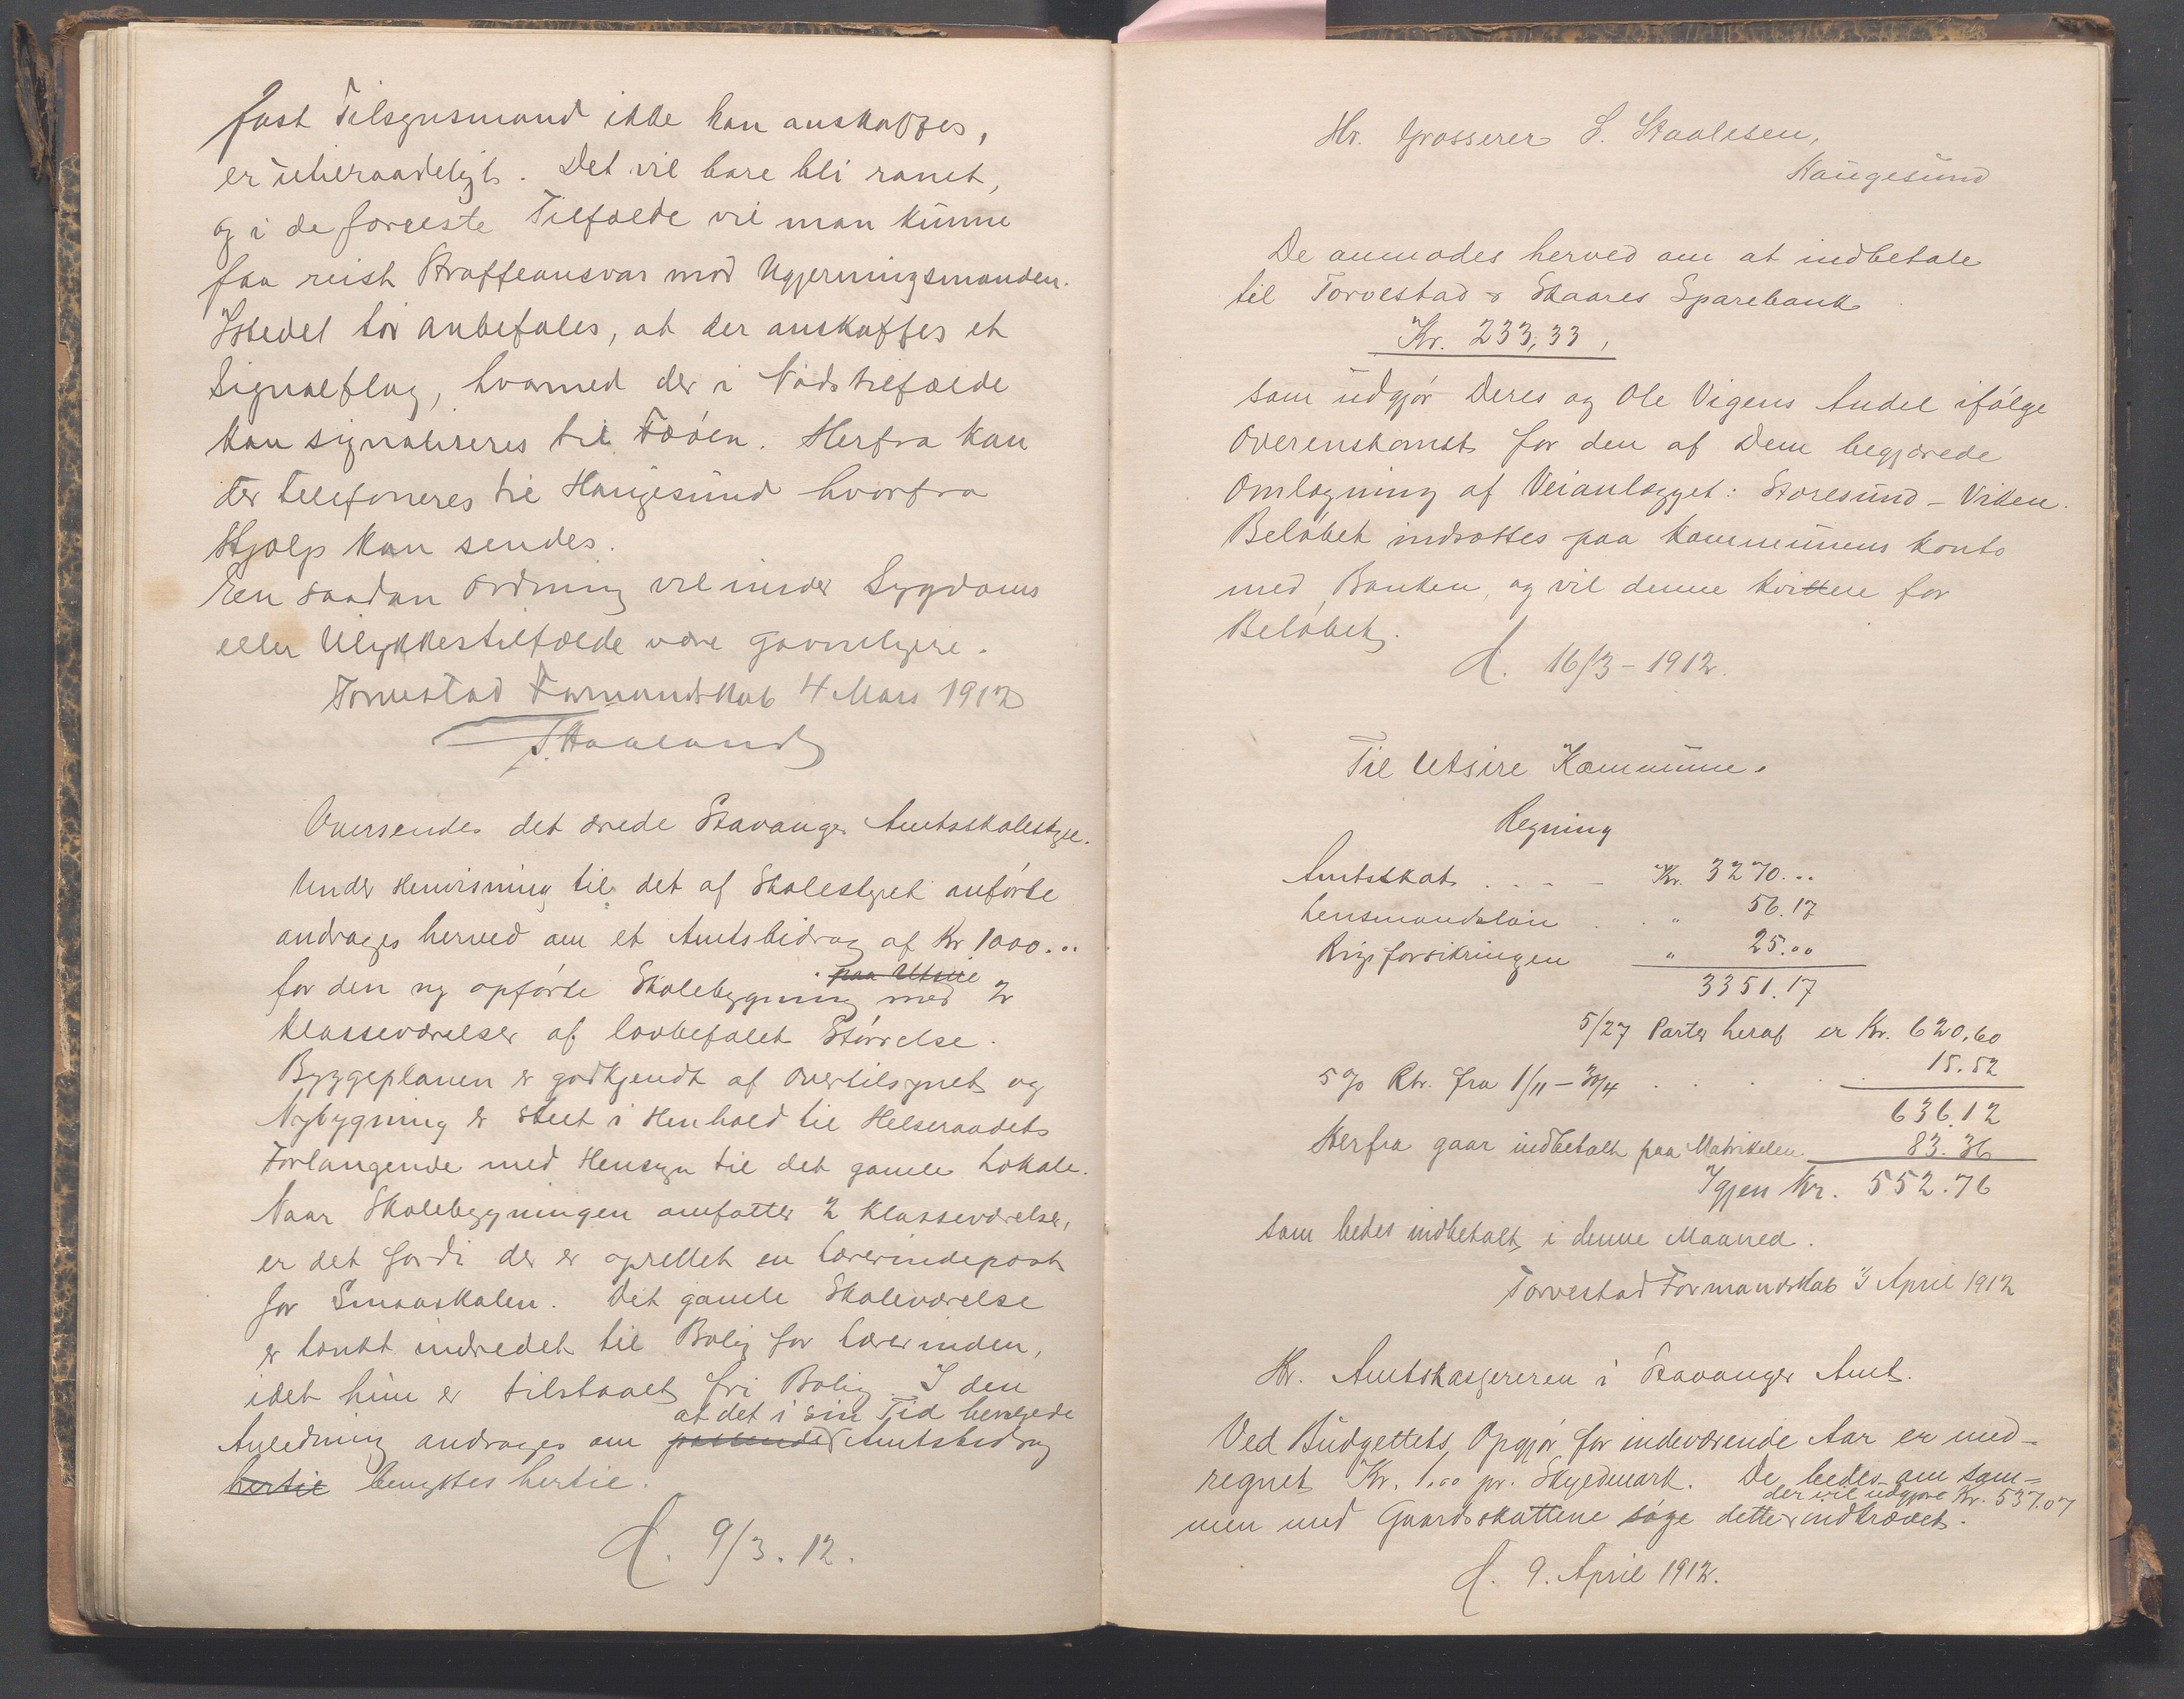 fast Tilsynsmand ikke kan anskaffes,
er utilraadeligt. Det vil bare bli ranet,
og i de færreste Tilfælde vil man kunne
faa reist Straffeansvar mod Ugjerningsmanden.
Istedet bør anbefales, at der anskaffes et
Signalflag, hvormed der i Nødstilfælde
kan signaliseres til Fæøen. Herfra kan
der telefoneres til Haugesund hvorfra
Hjælp kan sendes.
En saadan Ordning vil under Sygdoms
eller Ulykkestilfælde være gavnligere.
Torvestad Formandskab 4 Mars 1912
Oversendes det ærede Stavanger Amtsskolestyre.
Under Henvisning til det af Skolestyret anførte
andrages herved om et Amtsbidrag af Kr. 1000...
paa Utsire
for den ny opførte Skolebygning med 2
Klasseværelser af lovbefalet Størrelse.
Byggeplanen er godkjendt af Overtilsynet og
Nybygning er skeet i Henhold til Helseraadets
Forlangende med Hensyn til det gamle Lokale.
Naar Skolebygningen omfatter 2 Klasseværelser,
er det fordi der er oprettet en Lærerindepost
for Smaaskolen. Det gamle Skoleværelse
er tænkt indredet til Bolig for Lærerinden,
idet hun er tilstaaet fri Bolig. I den
at det i sin Tid bevilgede
Anledning andrages om passende Amtsbidrag
hertil benyttes hertil.
d. 9/3. 12.
Hr. Grosserer S. Staalesen,
Haugesund
De anmodes herved om at indbetale
til Torvestad & Skaares Sparebank
Kr. 233,33,
som udgjør Deres og Ole Vigens Andel ifølge
Overenskomst for den af Dem begjærede
Omlægning af Veianlægget: Storesund - Viken.
Beløbet indsættes paa Kommunens Konto
med Banken, og vil denne kvittere for
Beløbet.
d. 16/3 - 1912.
Til Utsire Kommune.
Regning
Amtsskat . . - - Kr. 3270...
Lensmandsløn . . " 56.17
Krigsforsikringen " 25.00
3351.17
5/27 Parter heraf er Kr. 620,60
5 % Rtr. fra 1/11 - 30/4 . . . . 15.52
636.12
Herfra gaar indbetalt paa Matrikelen 83.36
Igjen Kr. 552.76
som bedes indbetalt i denne Maaned.
Torvestad Formandskab 3 April 1912
Hr. Amtskasjereren i Stavanger Amt.
Ved Budgettets Opgjør for indeværende Aar er med-
regnet Kr. 1.00 pr. Skyldmark. De bedes om sam-
der vil udgjøre Kr. 537.07
men med Gaardsskattene søge dette indkrævet.
d. 9. April 1912.